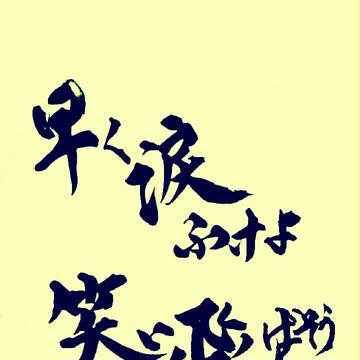 早く涙
ふけよ
笑い飛ばそう